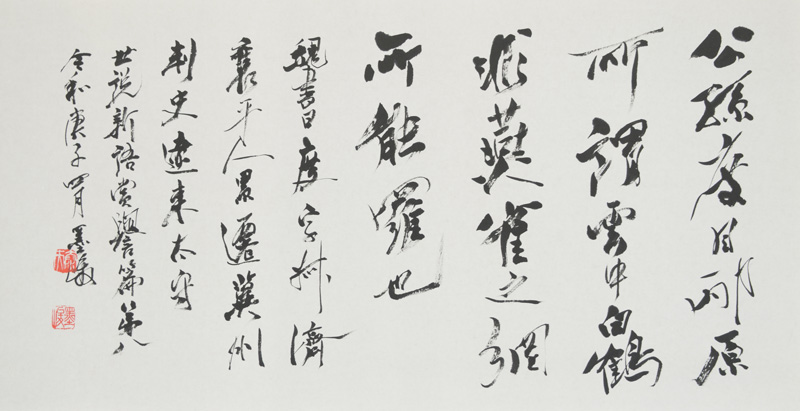 公孫度目邴原
所謂雲中白鶴
非燕雀之網
所能羅也
魏書曰度字叔濟
襄平人累遷冀州
刺史遼東太守
世說新語賞譽篇第八
令和庚子四月墨